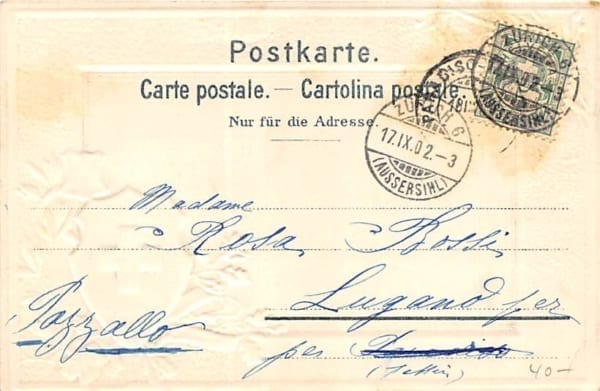 Postkarte.
Carte postale. — Cartolina postale.
Nur für die Adresse.
ZÜRICH 6
17.IX.02.-3
(AUSSERSIHL)
ZÜRICH 6
17.IX.02.-
(AUSSERSIHL)
Madame
Rosa Bossi
Lugano per
Pazzallo
per
40-